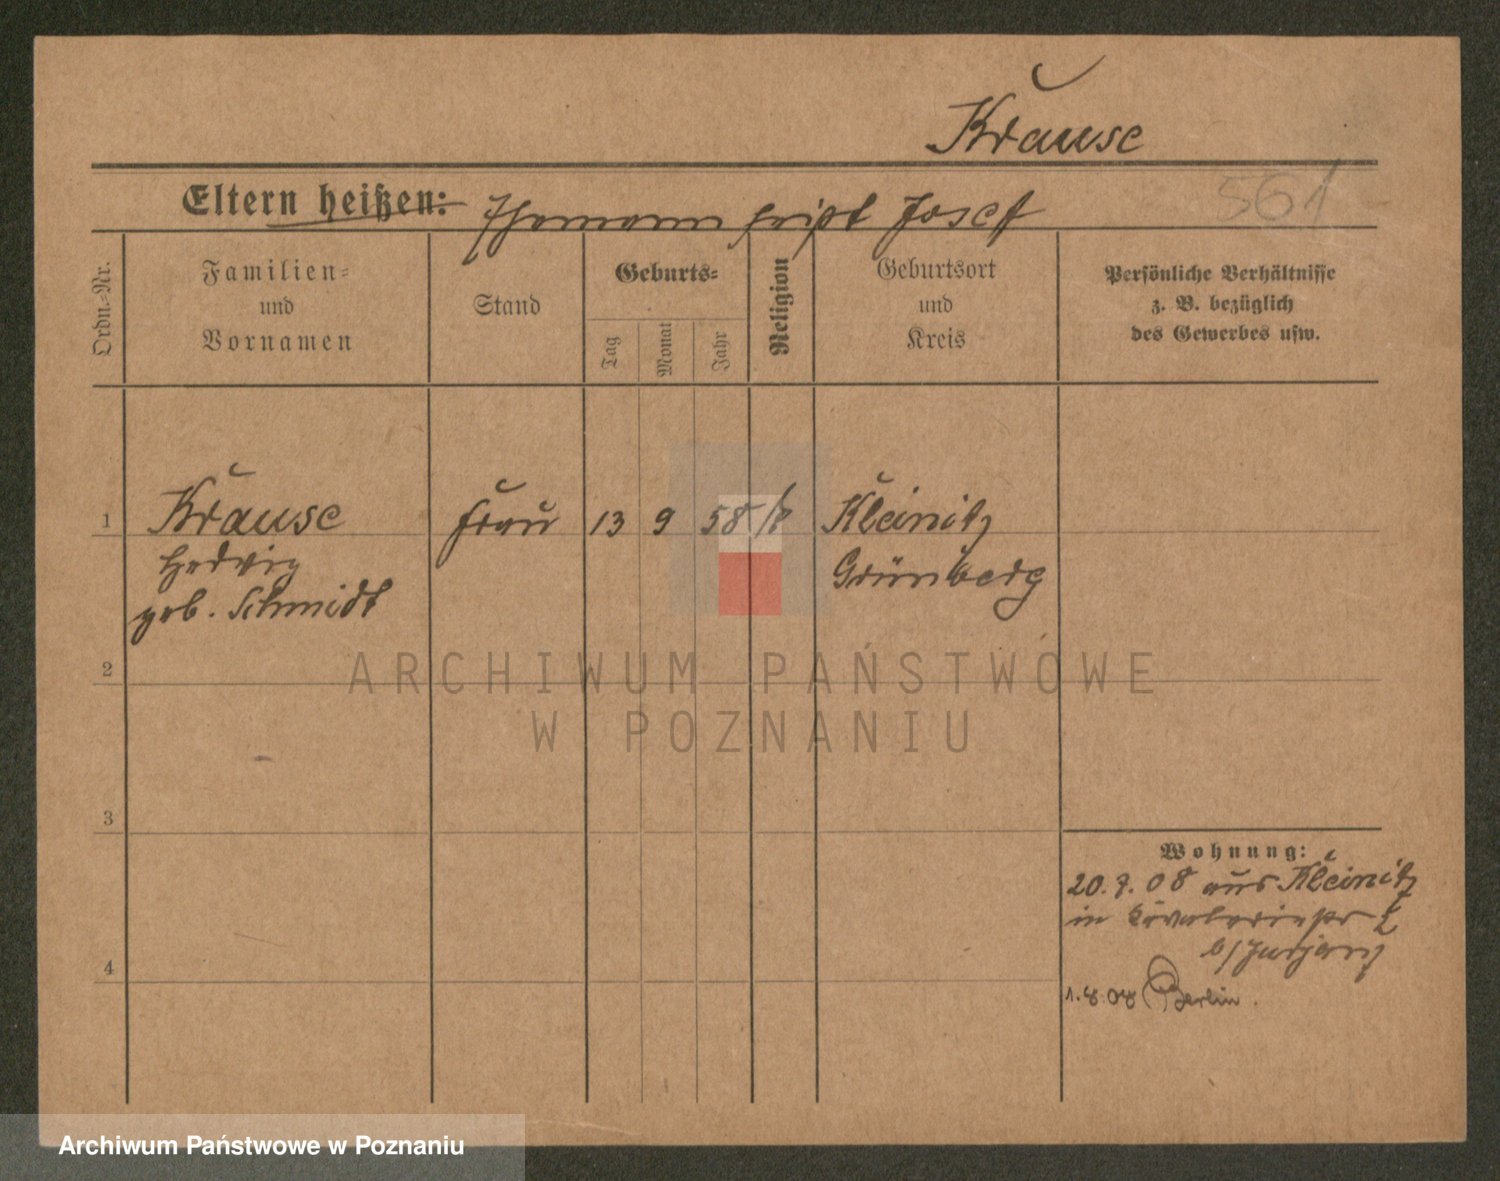 Krause
561
Eltern heißen: Ehemann heißt Josef
Ordn.-Nr.
Familien-
und
Vornamen
Stand
Geburts-
Tag
Monat
Jahr
Religion
Geburtsort
und
Kreis
Persönliche Verhältnisse
z. B. bezüglich
des Gewerbes usw.
1 Krause Frau 13 9 58 k Kleinitz
Hedwig Grünberg
geb. Schmidt
2
ARCHIWUM PAŃSTWOWE
W POZNANIU
3
Wohnung:
20. 08 aus Kleinitz
in
b/
4
1.8.08 Berlin.
Archiwum Państwowe w Poznaniu